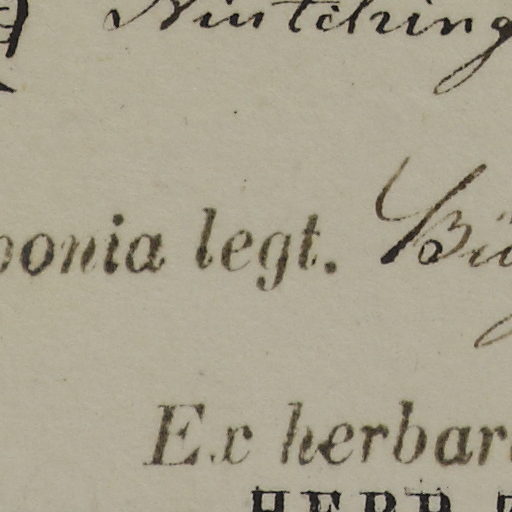 Nintching
ponia legt. Bü
Ex herbar
HERB